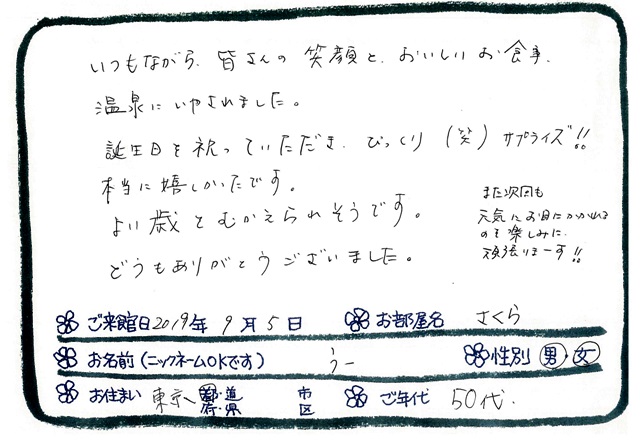 いつもながら、皆さんの笑顔と、おいしいお食事、
温泉にいやされました。
誕生日を祝っていただき、びっくり(笑)サプライズ!!
本当に嬉しかったです。
よい歳をむかえられそうです。
どうもありがとうございました。
また次回も
元気にお目にかかれる
のを楽しみに、
頑張りまーす!!
ご来館日 2019年 9月 5日 お部屋名 さくら
お名前(ニックネームOKです) うー 性別 男・女
お住まい 東京 都・道 府・県 市 区 ご年代 50代.